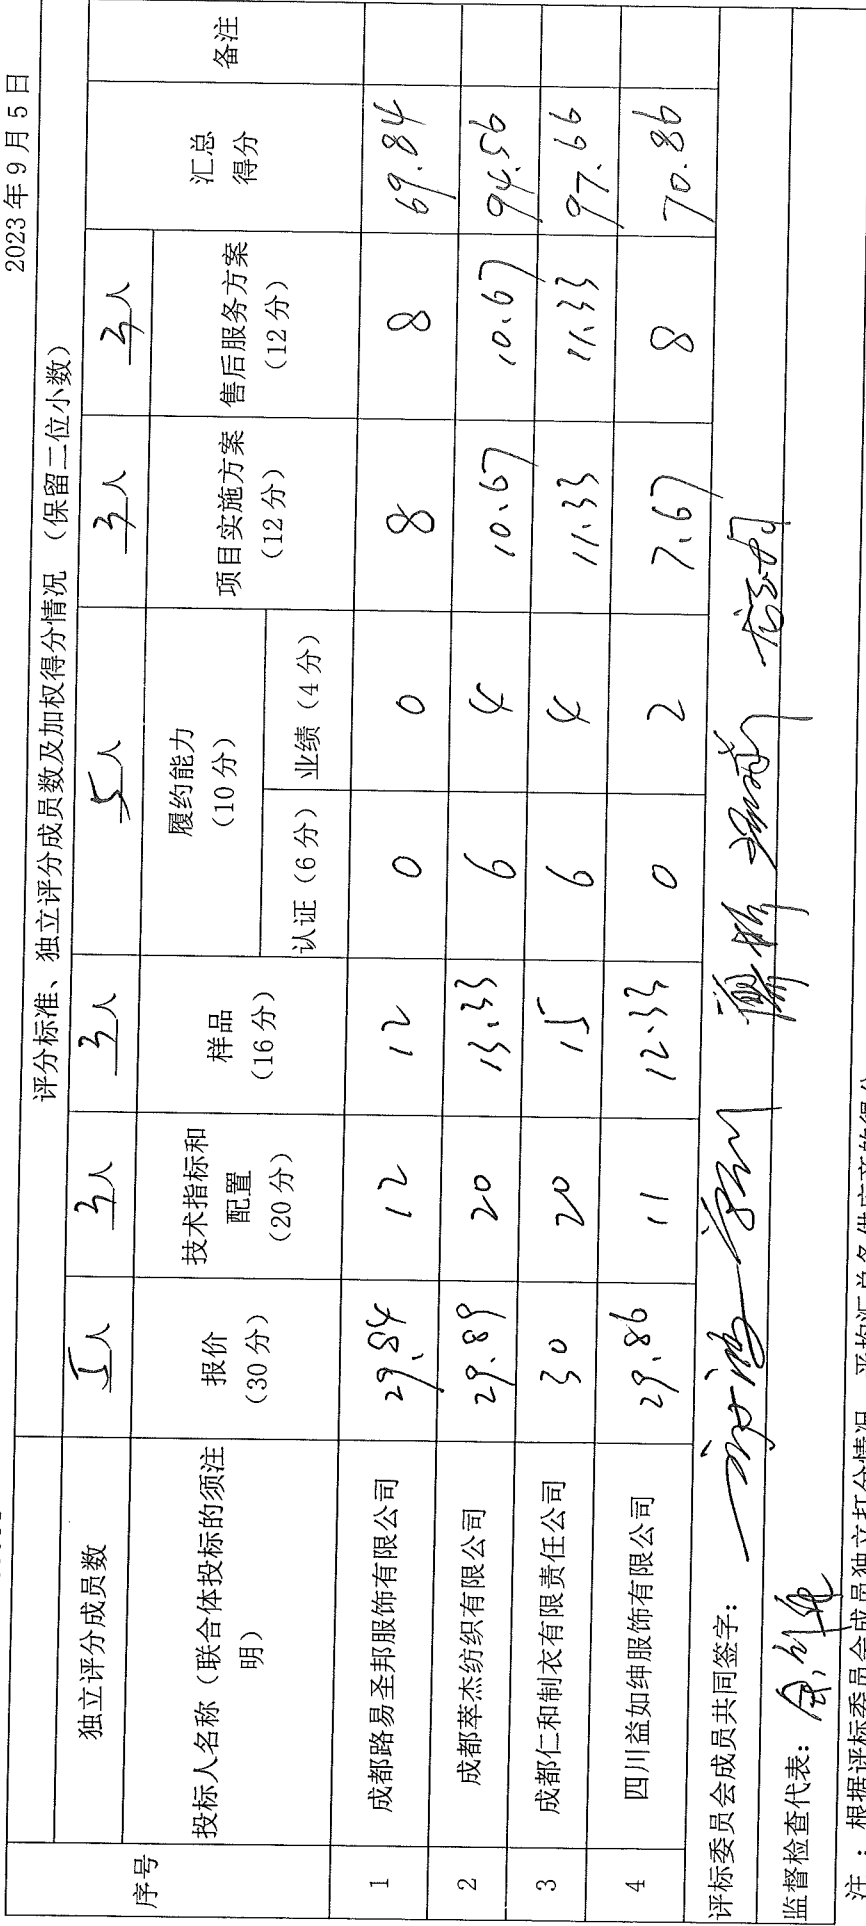 2023年9月5日
评分标准、独立评分成员数及加权得分情况（保留二位小数）
序号 独立评分成员数 5人 3人 3人 5人 3人 3人
投标人名称（联合体投标的须注明） 报价（30分） 技术指标和配置（20分） 样品（16分） 履约能力（10分） 项目实施方案（12分） 售后服务方案（12分） 汇总得分 备注
认证（6分） 业绩（4分）
1 成都路易圣邦服饰有限公司 29.84 12 12 0 0 8 8 69.84
2 成都萃杰纺织有限公司 29.89 20 13.33 6 4 10.67 10.67 94.56
3 成都仁和制衣有限责任公司 30 20 15 6 4 11.33 11.33 97.66
4 四川益如绅服饰有限公司 29.86 11 12.33 0 2 7.67 8 70.86
评标委员会成员共同签字：
监督检查代表：
注：根据评标委员会成员独立打分情况，平均汇总各供应商的得分